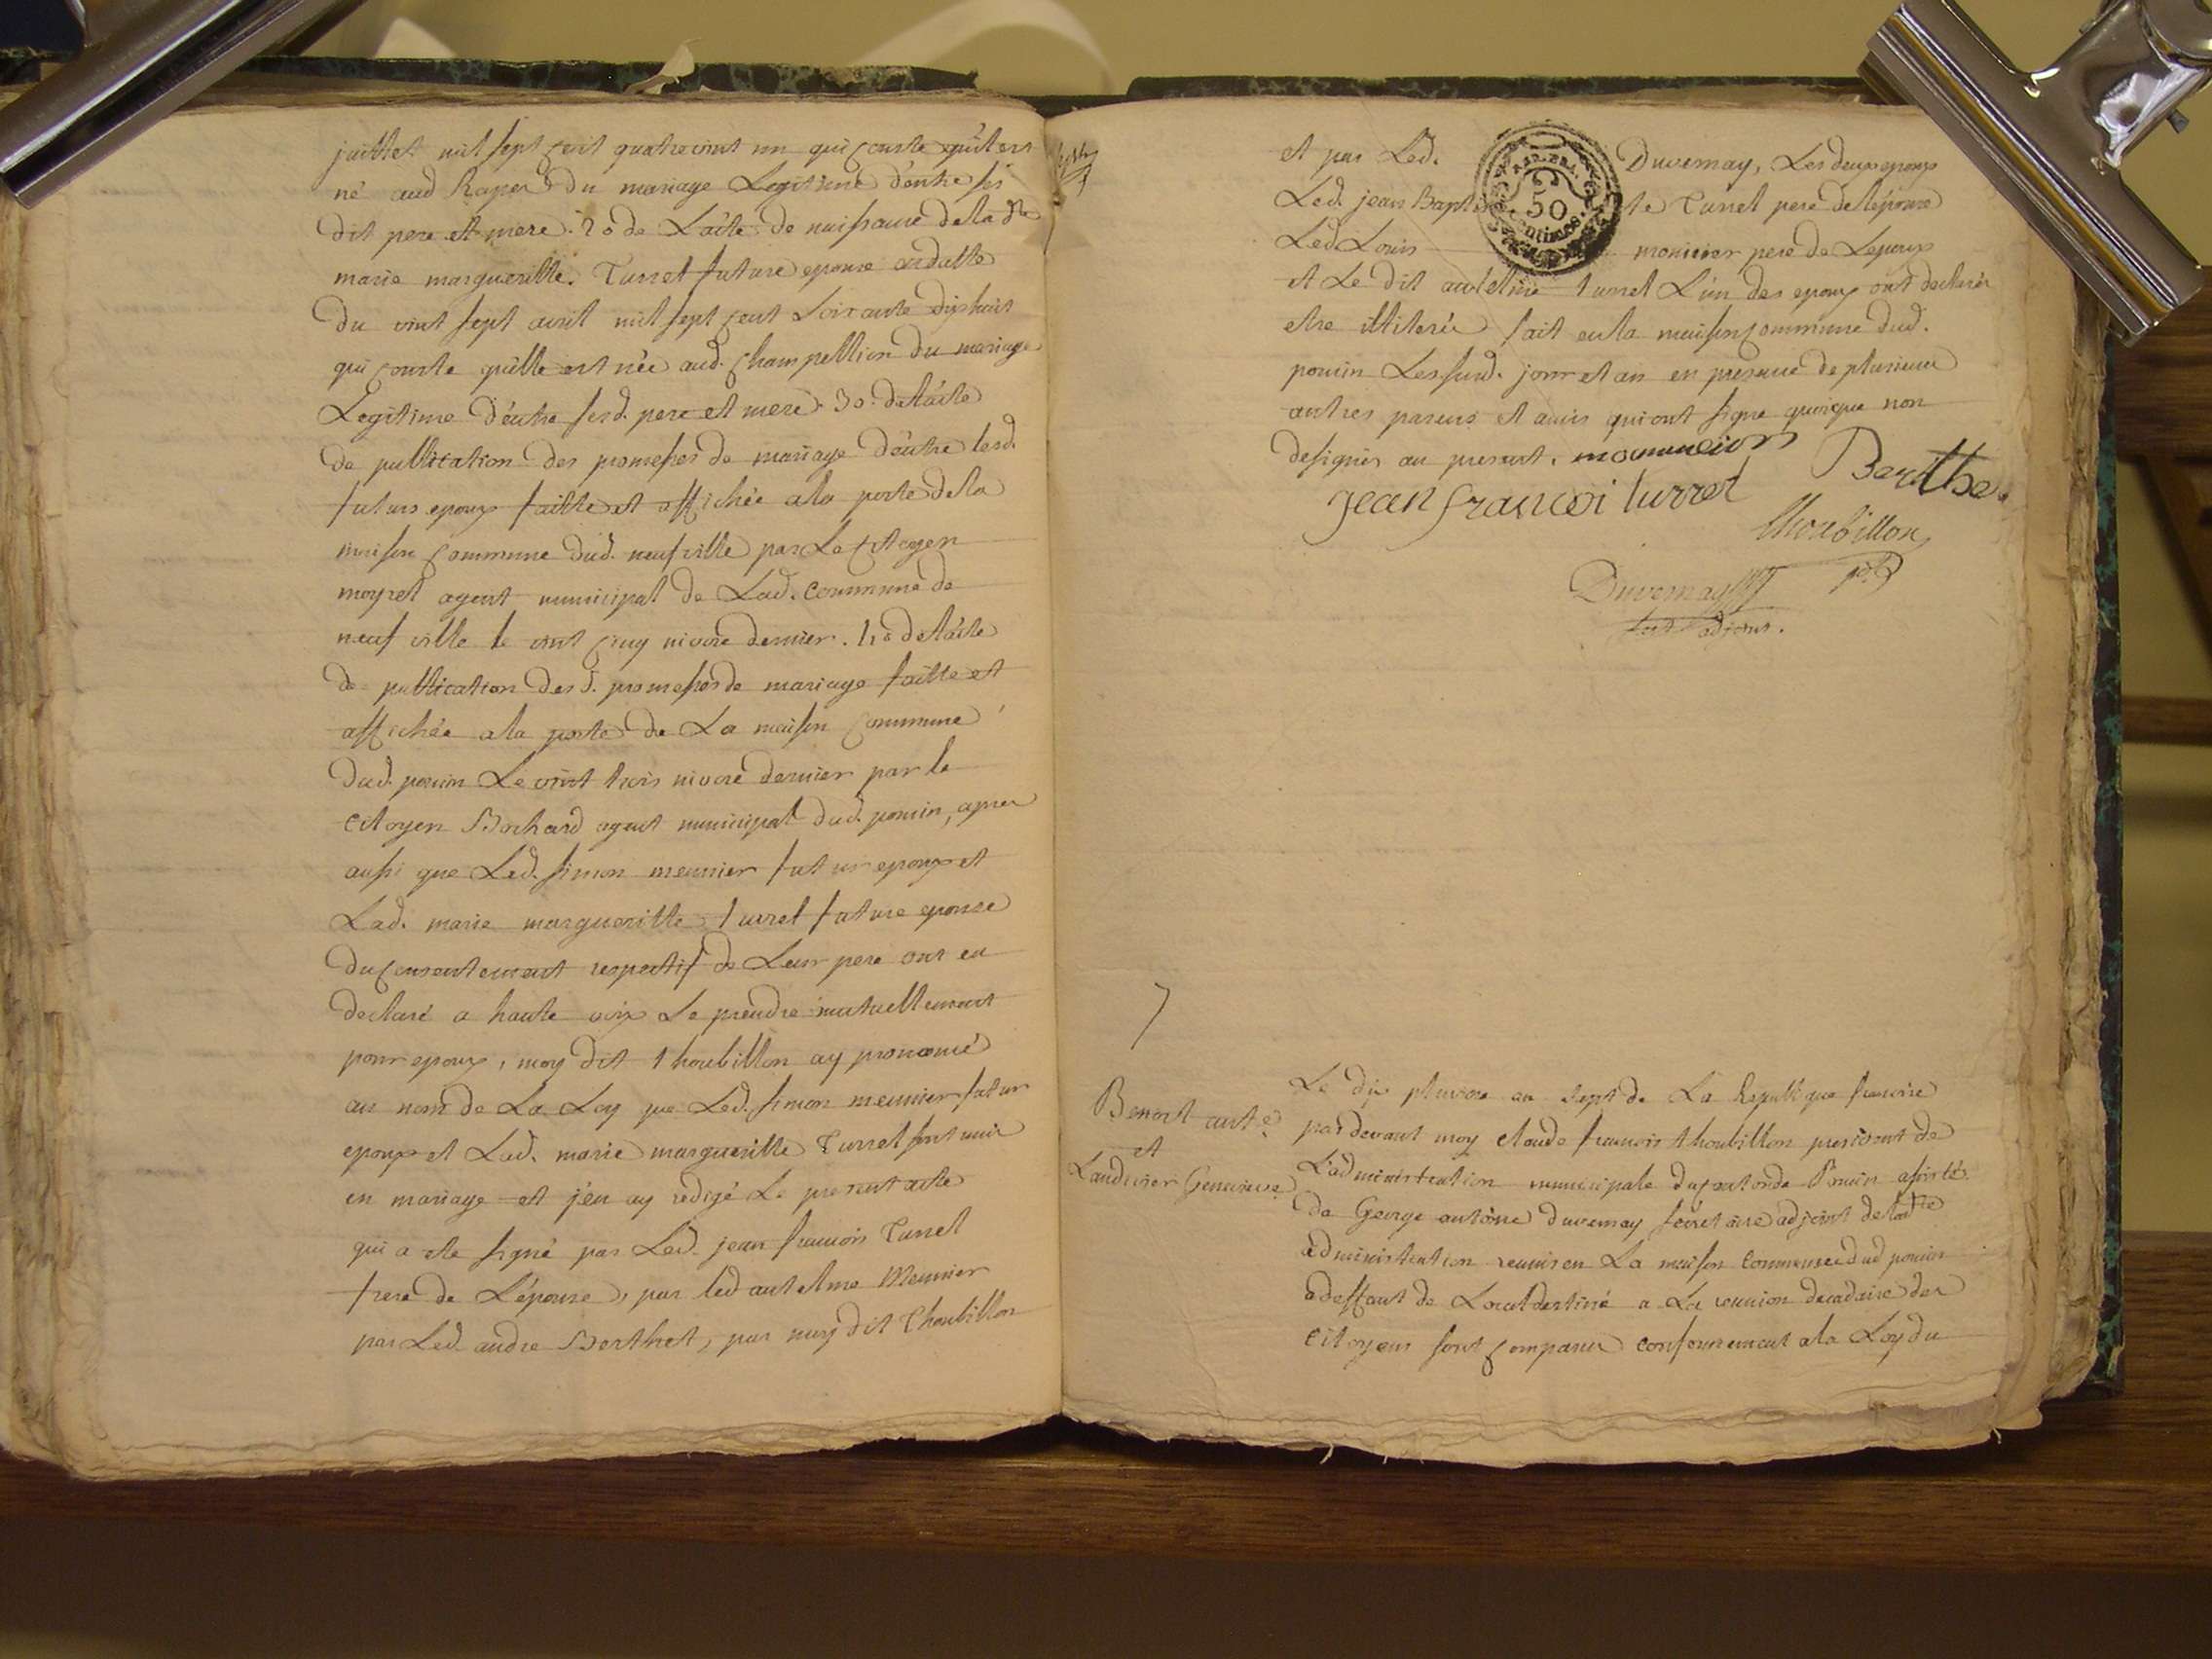 juillet mil sept cent quatre vint un qui conste qu'il est
né aud Rapes du mariage Legitime d'entre ses
dit pere et mere. 2o de L'acte de naissance de la dte
marie margueritte Turret future epouse en datte
du vint sept avril mil sept cent soixante dix huit
qui conste qu'elle est née aud. Champellion du mariage
Legitime d'entre sesd. pere et mere. 3o. de l'acte
de publication des promesses de mariage d'entre lesd.
futurs epoux faitte et affichée a la porte de la
maison commune dud. neufville par Le citoyen
moyret agent municipal de Lad. commune de
neufville le vint cinq nivose dernier. 4o de l'acte
de publication des d. promesses de mariage faitte et
affichée a la porte de La maison commune
dud. poncin Le vint trois nivose dernier par le
citoyen Bochard agent municipal dud. poncin, apres
aussi que Led. simon meunier futur epoux et
Lad. marie margueritte turret future epouse
du consentement respectif de Leur pere ont eu
declaré a haute voix Se prendre mutuellement
pour epoux, moy dit thoubillon ay prononcé
au nom de La Loy que Led. simon meunier futur
epoux et Lad. marie margueritte Turret sont unis
en mariage et j'en ay redigé Le present acte
qui a ete signé par Led. jean francois Turret
frere de L'épouse, par led antelme Meunier
par Led. andre Berthet, par moy dit Thoubillon
et par Led. Duvernay, Les deux epoux
Led. jean Baptiste Turret pere de l'épouse
Led Louis monnier pere de Lepoux
et Le dit antelme turret L'un des epoux ont declarés
etre illiterés fait en la maison commune dud.
poncin Les susd. jour et an en presence de plusieurs
autres parens et amis qui ont signé quoique non
designés au present.
50
centimes
Berthet
jean francoi turret
thoubillon
Duvernay
adjoint.
7
Benoit ante
et
Laudurier Genevieve
Le dix pluviose an sept de La Republique francoise
par devant moy claude francois thoubillon president de
L'administration municipale du canton de Poncin assisté
de George antoine duvernay secretaire adjoint de ladte
administration reunis en La maison commune dud poncin
a deffaut de Local destiné a La reunion decadaire des
citoyens sont comparu conformement a la Loy du